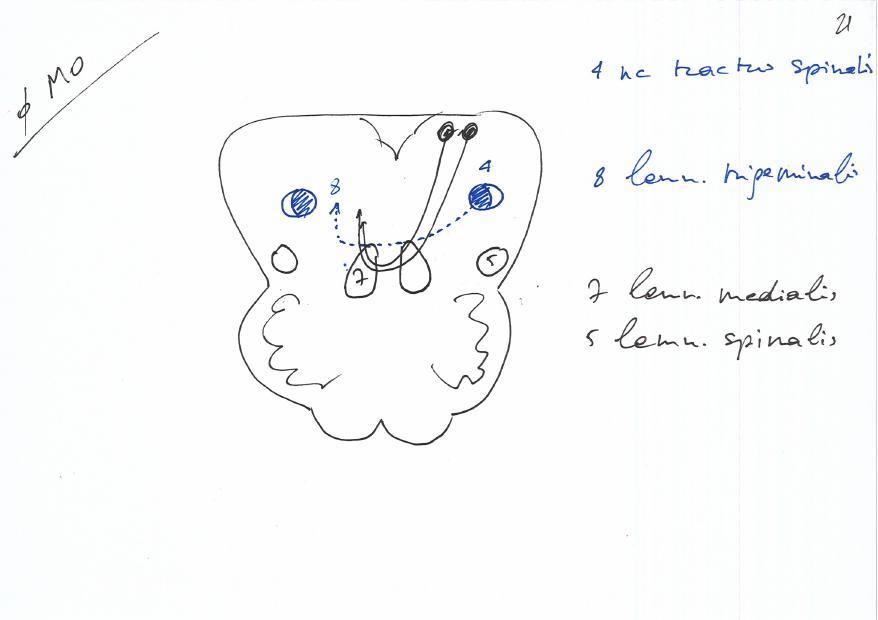 21
ϕ MO
4 nc tractus spinalis
8 lemn. trigeminalis
7 lemn. medialis
5 lemn. spinalis
8
4
7
5